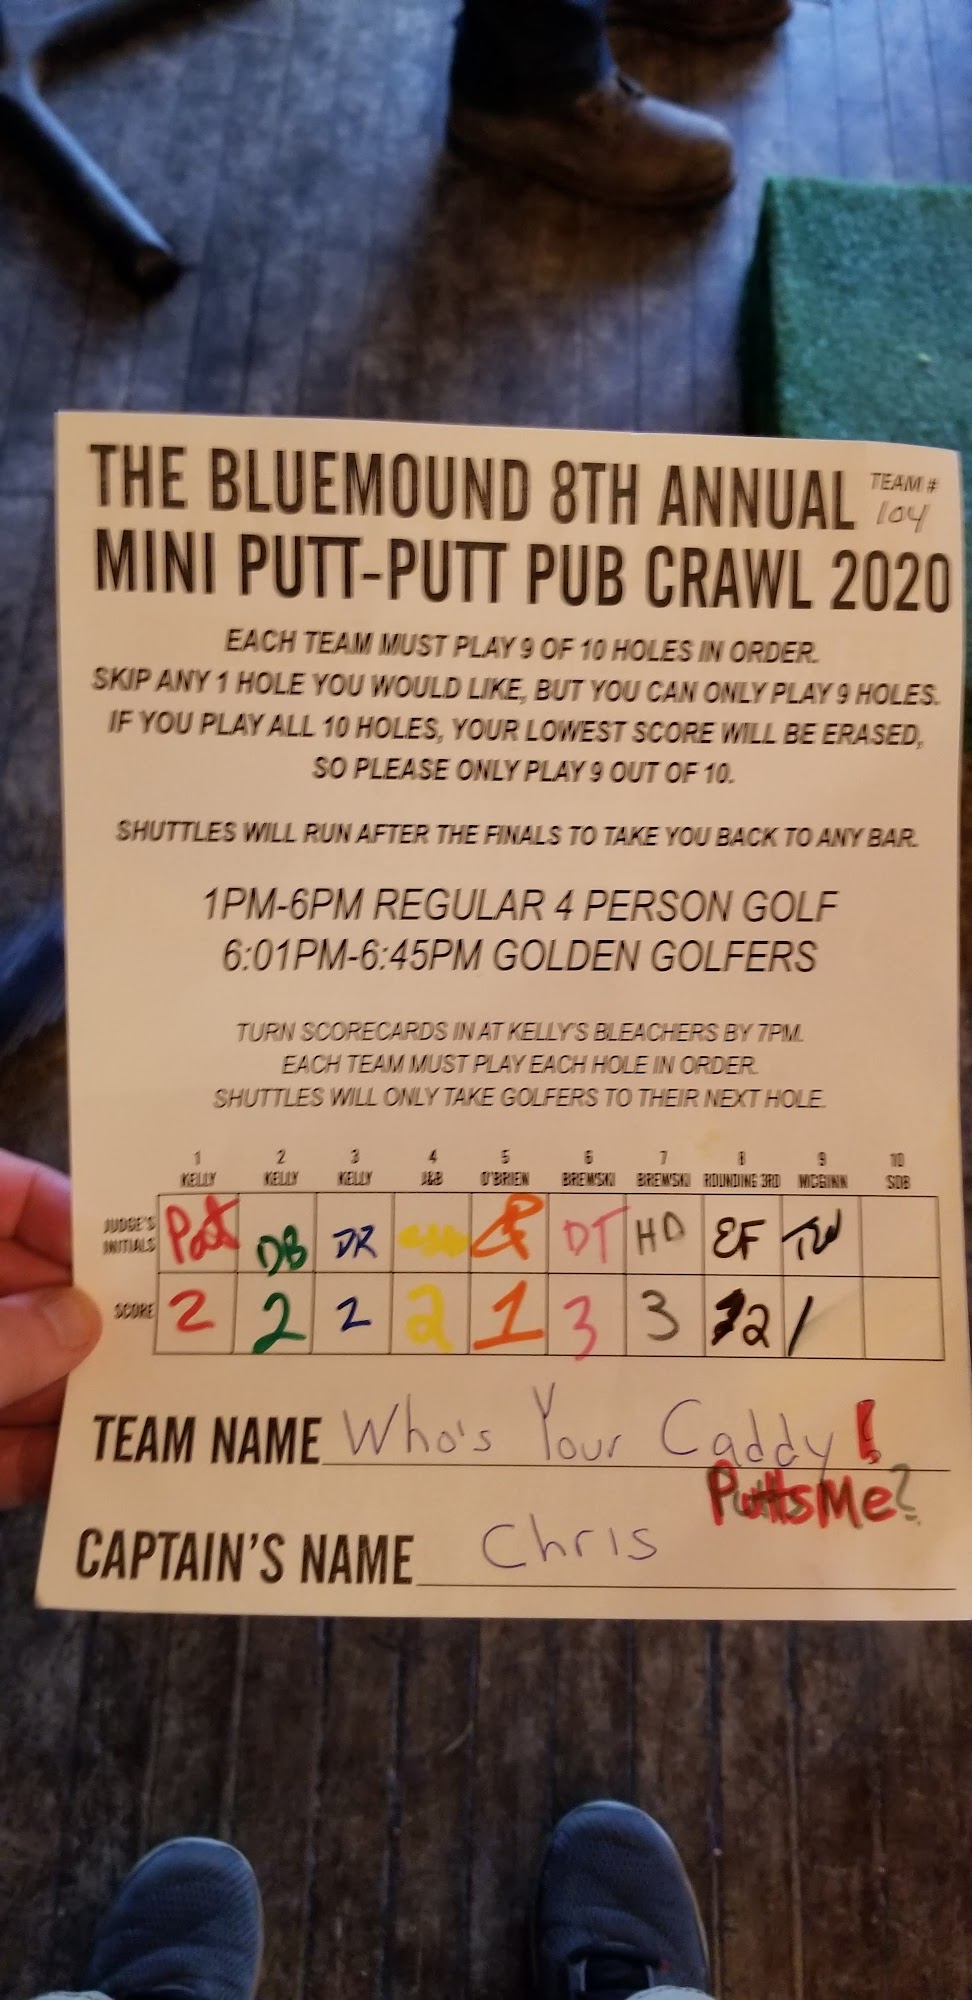 THE BLUEMOUND 8TH ANNUAL
TEAM #
104
MINI PUTT-PUTT PUB CRAWL 2020
EACH TEAM MUST PLAY 9 OF 10 HOLES IN ORDER.
SKIP ANY 1 HOLE YOU WOULD LIKE, BUT YOU CAN ONLY PLAY 9 HOLES.
IF YOU PLAY ALL 10 HOLES, YOUR LOWEST SCORE WILL BE ERASED,
SO PLEASE ONLY PLAY 9 OUT OF 10.
SHUTTLES WILL RUN AFTER THE FINALS TO TAKE YOU BACK TO ANY BAR.
1PM-6PM REGULAR 4 PERSON GOLF
6:01PM-6:45PM GOLDEN GOLFERS
TURN SCORECARDS IN AT KELLY'S BLEACHERS BY 7PM.
EACH TEAM MUST PLAY EACH HOLE IN ORDER.
SHUTTLES WILL ONLY TAKE GOLFERS TO THEIR NEXT HOLE.
1 2 3 4 5 6 7 8 9 10
KELLY KELLY KELLY J&B O'BRIEN BREWSKI BREWSKI ROUNDING 3RD MCGINN SOB
JUDGE'S INITIALS Pat DB DR DT HD EF TW
SCORE 2 2 2 2 1 3 3 2 1
TEAM NAME Who's Your Caddy!
PuttsMe?
CAPTAIN'S NAME Chris